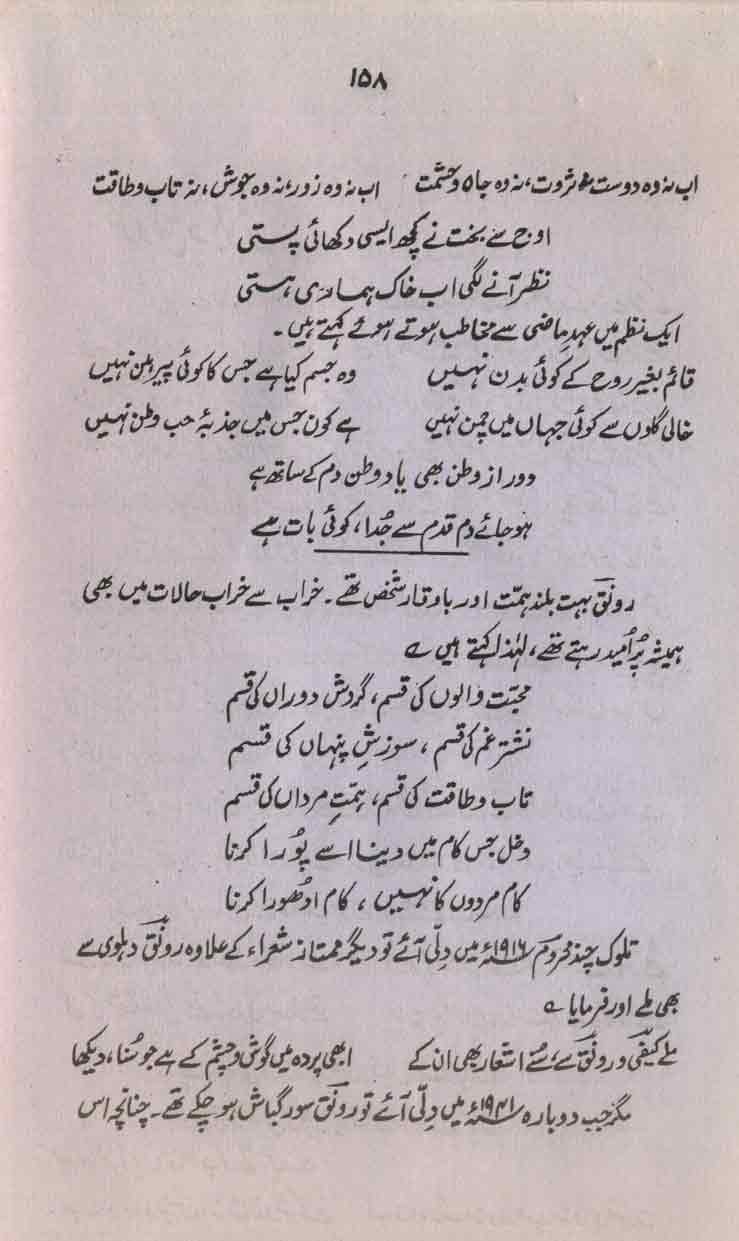 ۱۵۸
اب نہ وہ دوست نہ ثروت، نہ وہ جاہ و حشمت اب نہ وہ زور، نہ وہ جوش، نہ تاب و طاقت
اوج سے بخت نے کچھ ایسی دکھائی پستی
نظر آنے لگی اب خاک ہماری ہستی
ایک نظم میں عہدِ ماضی سے مخاطب ہوتے ہوئے کہتے ہیں۔
قائم بغیر روح کے کوئی بدن نہیں وہ جسم کیا ہے جس کا کوئی پیرہن نہیں
خالی گلوں سے کوئی جہاں میں چمن نہیں ہے کون جس میں جذبۂ حب وطن نہیں
دور از وطن بھی یاد وطن دم کے ساتھ ہے
ہو جائے دم قدم سے جُدا، کوئی بات ہے
رونقؔ بہت بلند ہمّت اور باوقار شخص تھے۔ خراب سے خراب حالات میں بھی
ہمیشہ پُر اُمید رہتے تھے، لہٰذا کہتے ہیں ؎
محبّت والوں کی قسم، گردش دوراں کی قسم
نشتر غم کی قسم، سوزشِ پنہاں کی قسم
تاب و طاقت کی قسم، ہمّتِ مرداں کی قسم
دخل جس کام میں دینا اسے پُورا کرنا
کام مردوں کا نہیں، کام ادھورا کرنا
تلوک چند محرومؔ ۱۹۱۶ء میں دلّی آئے تو دیگر ممتاز شعراء کے علاوہ رونقؔ دہلوی سے
بھی ملے اور فرمایا ؎
ملے کیفیؔ و رونقؔ سے، سُنے اشعار بھی ان کے ابھی پردہ میں گوش و چشم کے ہے جو سُنا، دیکھا
مگر جب دوبارہ ۱۹۴۱ء میں دلّی آئے تو رونقؔ سورگباش ہو چکے تھے۔ چنانچہ اس